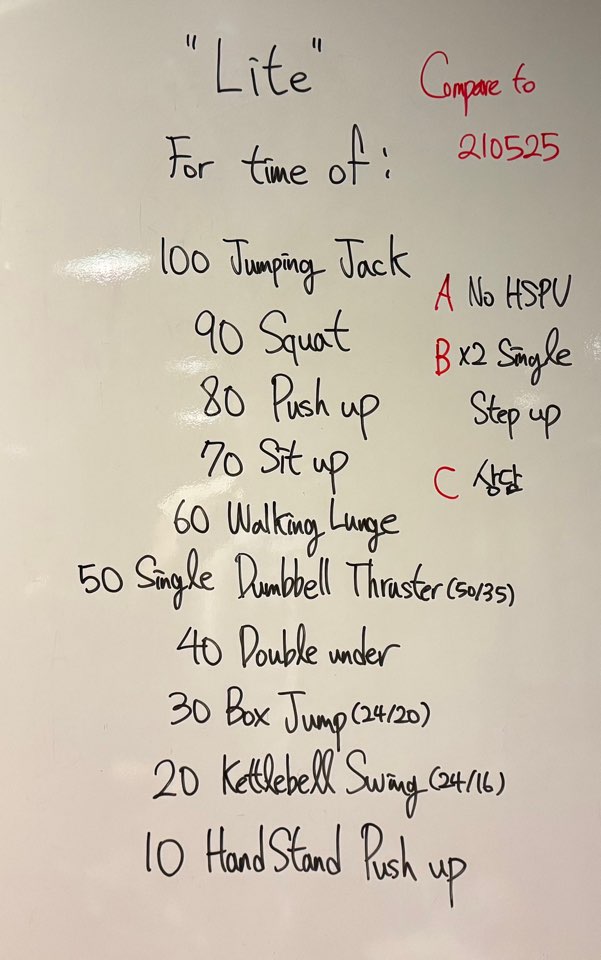 "Lite"
Compare to
210525
For time of :
100 Jumping Jack
90 Squat
80 Push up
70 Sit up
60 Walking Lunge
50 Single Dumbbell Thruster (50/35)
40 Double under
30 Box Jump (24/20)
20 Kettlebell Swing (24/16)
10 HandStand Push up
A No HSPU
B x2 Single
Step up
C 상담